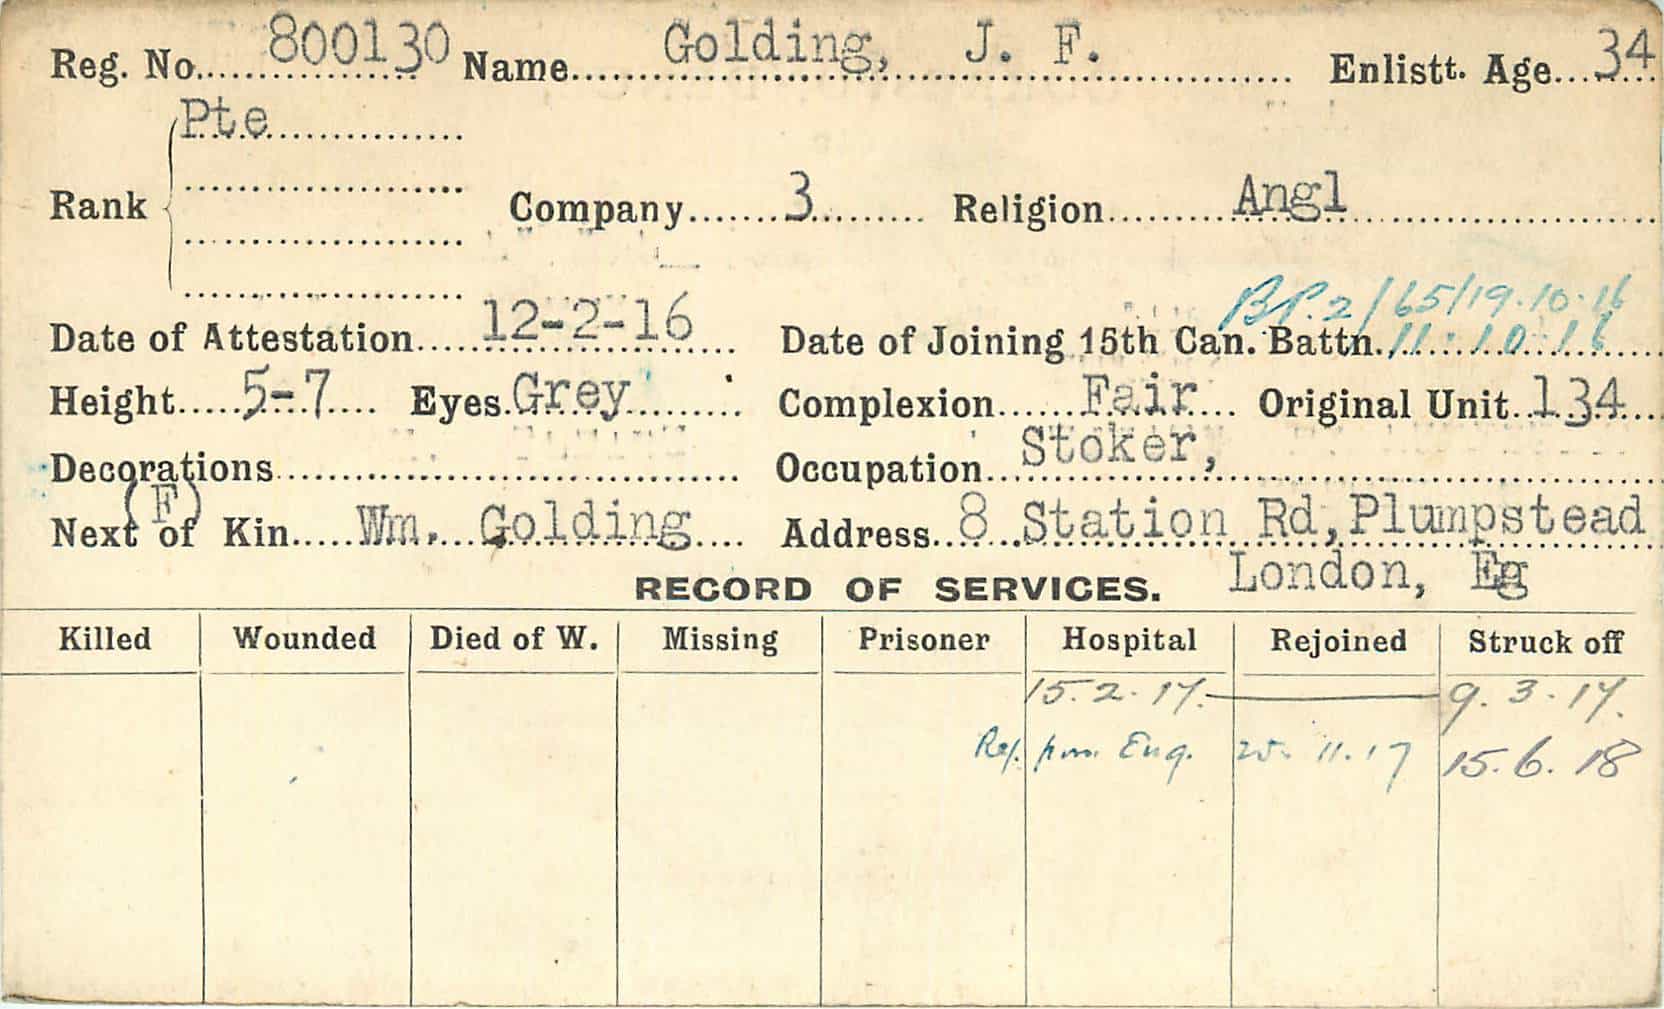 Reg. No. 800130 Name Golding, J. F. Enlistt. Age 34
Pte
Rank Company 3 Religion Angl
B.P.2/65/19.10.16
Date of Attestation 12-2-16 Date of Joining 15th Can. Battn. 11.10.16
Height 5-7 Eyes Grey Complexion Fair Original Unit 134
Decorations Occupation Stoker,
(F)
Next of Kin Wm. Golding Address 8 Station Rd, Plumpstead
London, Eg
RECORD OF SERVICES.
Killed Wounded Died of W. Missing Prisoner Hospital Rejoined Struck off
15.2.17. 9.3.17.
Rej. from Eng. 25.11.17 15.6.18